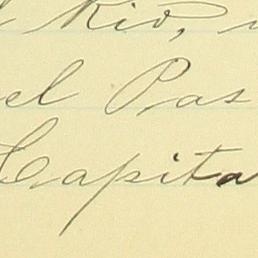 Rio,
el Pas
Capita